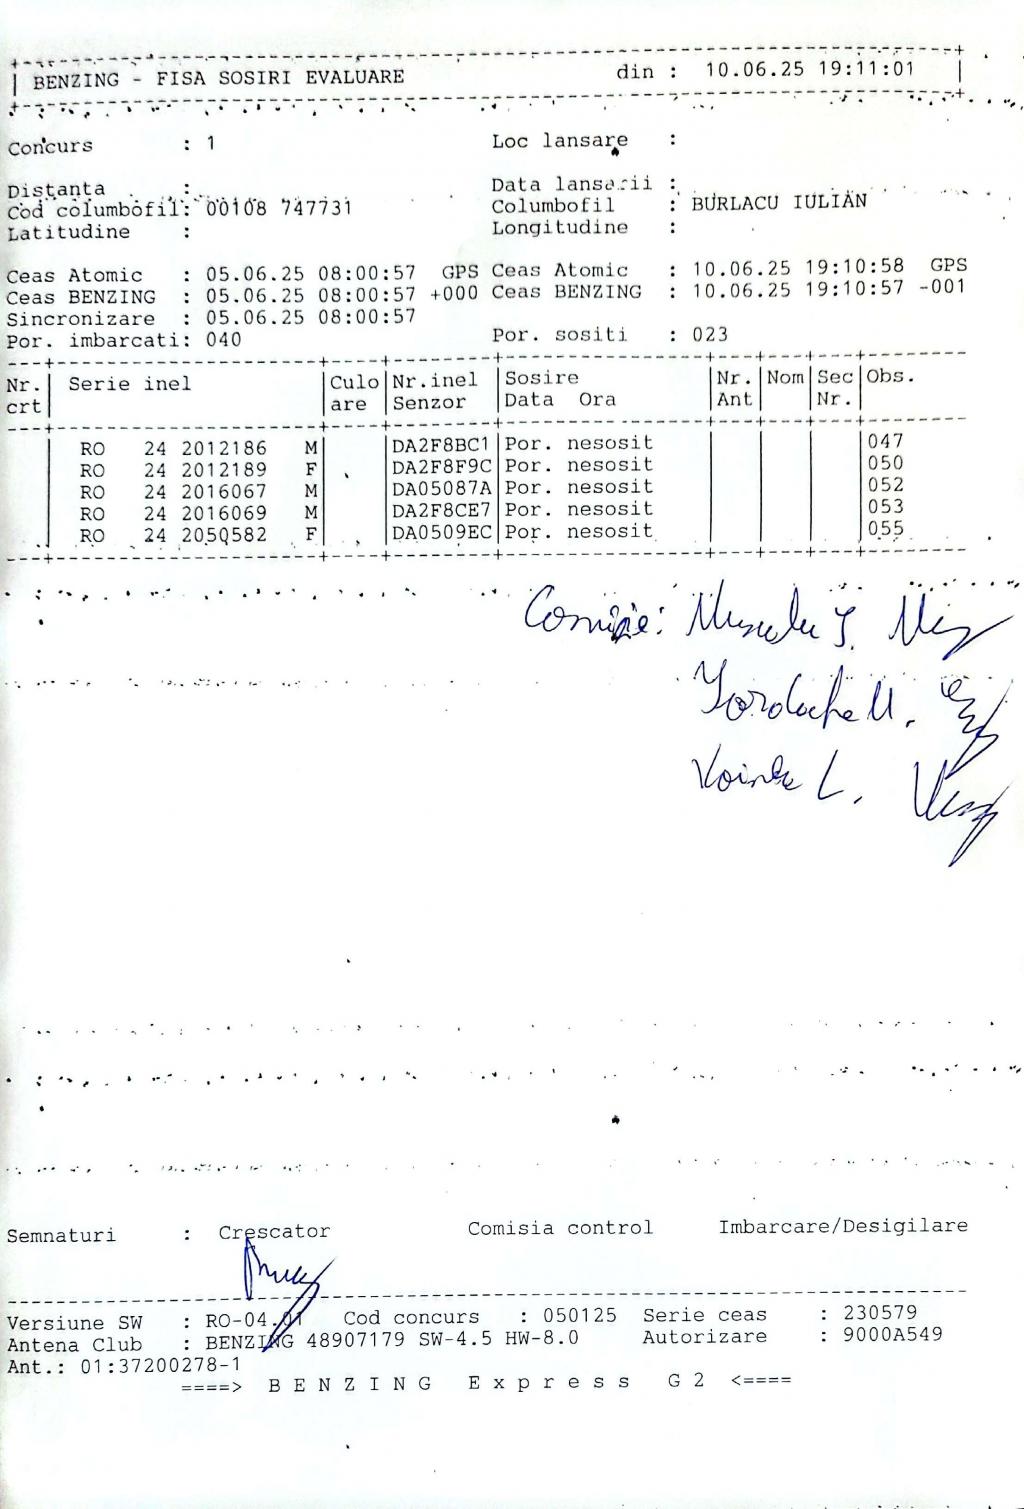 BENZING - FISA SOSIRI EVALUARE din : 10.06.25 19:11:01
Concurs : 1 Loc lansare :
Distanta : Data lansarii :
Cod columbofil: 00108 747731 Columbofil : BURLACU IULIAN
Latitudine : Longitudine :
Ceas Atomic : 05.06.25 08:00:57 GPS Ceas Atomic : 10.06.25 19:10:58 GPS
Ceas BENZING : 05.06.25 08:00:57 +000 Ceas BENZING : 10.06.25 19:10:57 -001
Sincronizare : 05.06.25 08:00:57
Por. imbarcati: 040 Por. sositi : 023
Nr. Serie inel Culo Nr.inel Sosire Nr. Nom Sec Obs.
crt are Senzor Data Ora Ant Nr.
RO 24 2012186 M DA2F8BC1 Por. nesosit 047
RO 24 2012189 F DA2F8F9C Por. nesosit 050
RO 24 2016067 M DA05087A Por. nesosit 052
RO 24 2016069 M DA2F8CE7 Por. nesosit 053
RO 24 2050582 F DA0509EC Por. nesosit 055
Comisie:
Iordache M.
L.
Semnaturi : Crescator Comisia control Imbarcare/Desigilare
Versiune SW : RO-04.01 Cod concurs : 050125 Serie ceas : 230579
Antena Club : BENZING 48907179 SW-4.5 HW-8.0 Autorizare : 9000A549
Ant.: 01:37200278-1
====> B E N Z I N G E x p r e s s G 2 <====